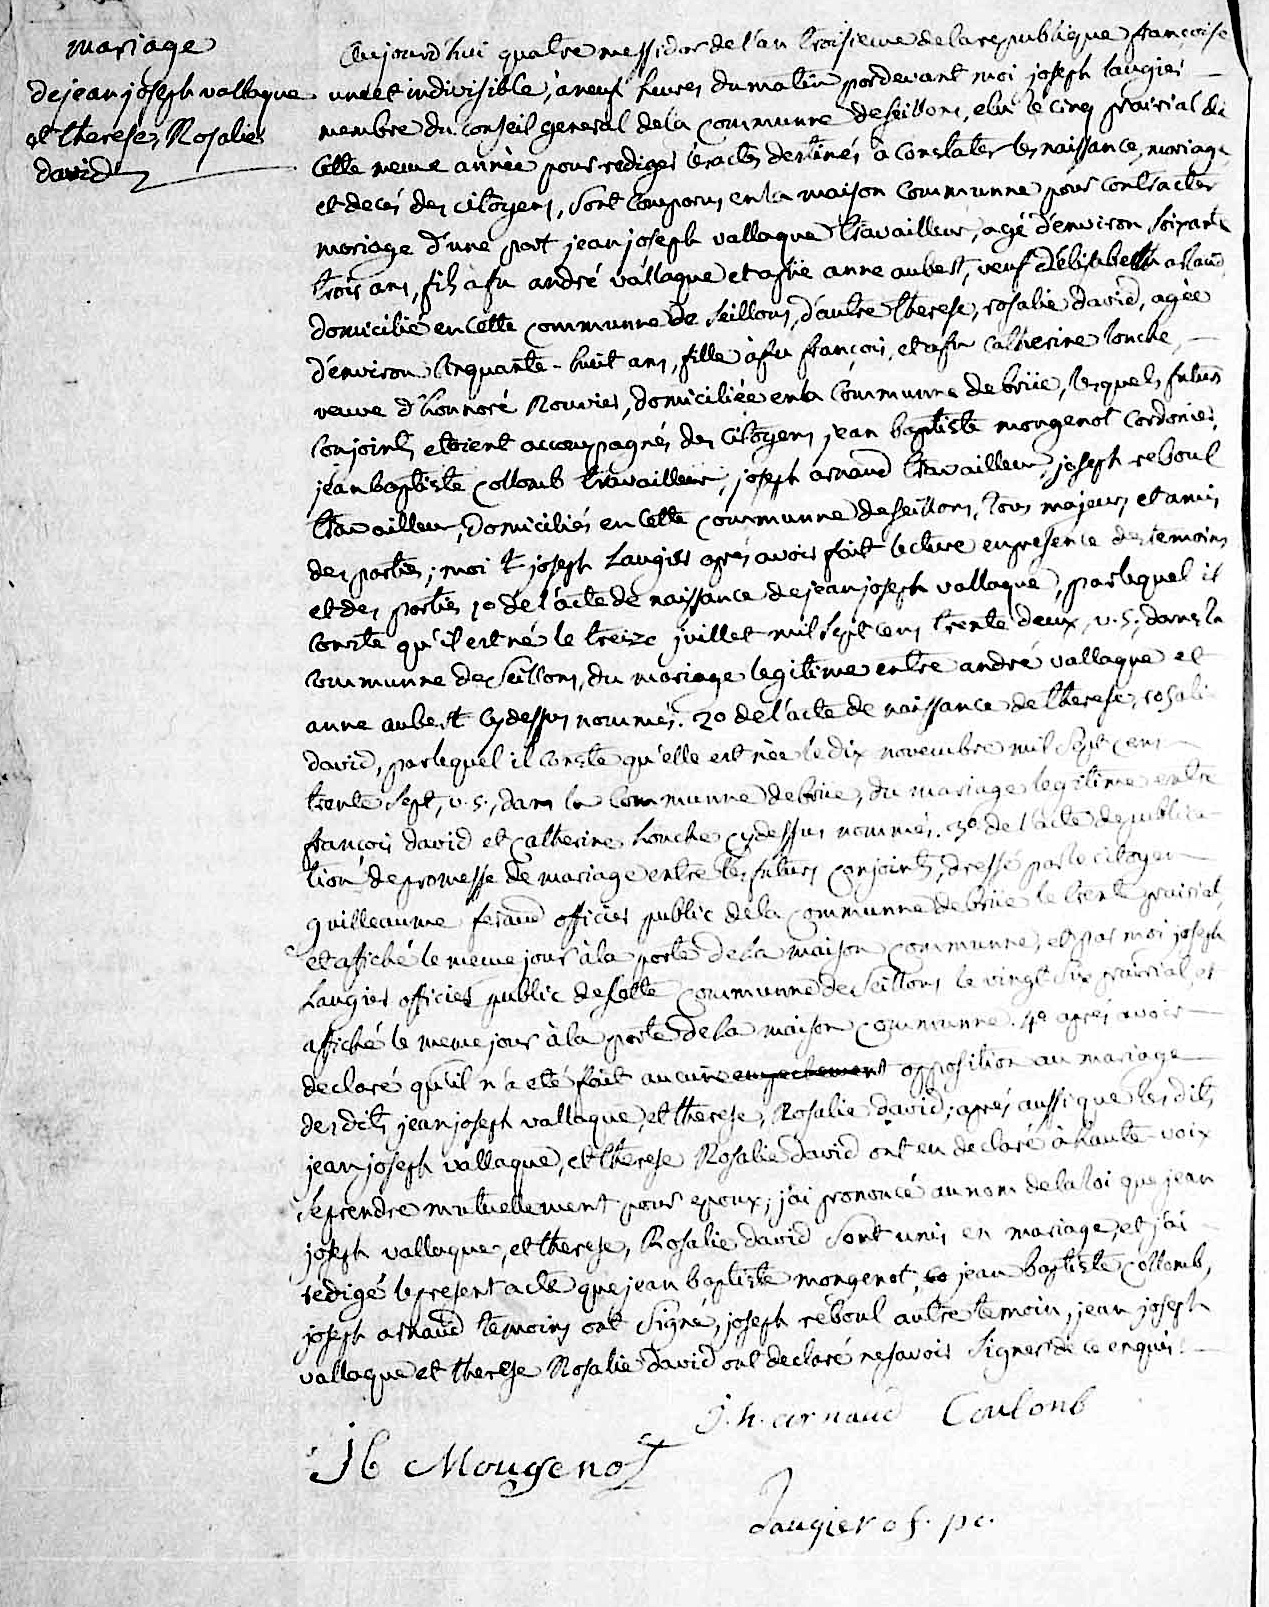 mariage
de jean joseph vallaque
et therese, Rosalie
david
Aujourd'hui quatre messidor de l'an troisieme de la republique françoise
une et indivisible, à neuf heures du matin pardevant moi joseph laugier
membre du conseil general de la communne de seillons, elu le cinq prairial de
cette meme année pour rediger les actes destinés à constater les naissance, mariage
et decés des citoyens, sont comparus en la maison communne pour contracter
mariage d'une part jean joseph vallaque travailleur, agé d'environ soixante
trois ans, fils à fu andré vallaque et a füe anne aubert, veuf d'élisabeth
domicilié en cette communne de seillons, d'autre therese, rosalie david, agée
d'environ cinquante-huit ans, fille à fu françois, et a fu catherine honche,
veuve d'honnoré Rouvier, domiciliée en la communne de brüe, lesquels futurs
conjoints etoient accompagnés des citoyens jean baptiste mongenot cordonier,
jean baptiste collomb travailleur, joseph arnaud travailleur, joseph reboul
travailleur, domiciliés en cette communne de seillons, tous majeurs et amis
des parties; moi joseph Laugier aprés avoir fait lecture en presence des temoins
et des parties 1º de l'acte de naissance de jean joseph vallaque, par lequel il
conste qu'il est né le treize juillet mil sept cens trente deux, v.s., dans la
communne de seillons, du mariage legitime entre andré vallaque et
anne aubert cy dessus nommés. 2º de l'acte de naissance de therese, rosalie
david, par lequel il conste qu'elle est née le dix novembre mil sept cens
trente sept, v.s., dans la communne de brüe, du mariage legitime entre
françois david et catherine honche cy dessus nommés. 3º de l'acte de publica-
tion de promesse de mariage entre les futurs conjoints, dressé par le citoyen
guilleaume feraud officier public de la communne de brüe le trente prairial,
et affiché le meme jour à la porte de la maison communne, et par moi joseph
Laugier officier public de cette communne de seillons le vingt six prairial, et
affiché le meme jour à la porte de la maison communne. 4º aprés avoir
declaré qu'il n'a eté fait aucune empechement opposition au mariage
desdits jean joseph vallaque, et therese, Rosalie david; aprés aussi que lesdits
jean joseph vallaque, et therese Rosalie david ont eu declaré à haute voix
se prendre mutuellement pour epoux; j'ai prononcé au nom de la loi que jean
joseph vallaque, et therese, Rosalie david sont unis en mariage, et j'ai
redigé le present acte que jean baptiste mongenot, jean baptiste collomb,
joseph arnaud temoins ont signé, joseph reboul autre temoin, jean joseph
vallaque et therese Rosalie david ont declaré ne savoir signer de ce enquis.
J. h. arnaud Coulonb
J b Mougenot
Laugier of. pc.